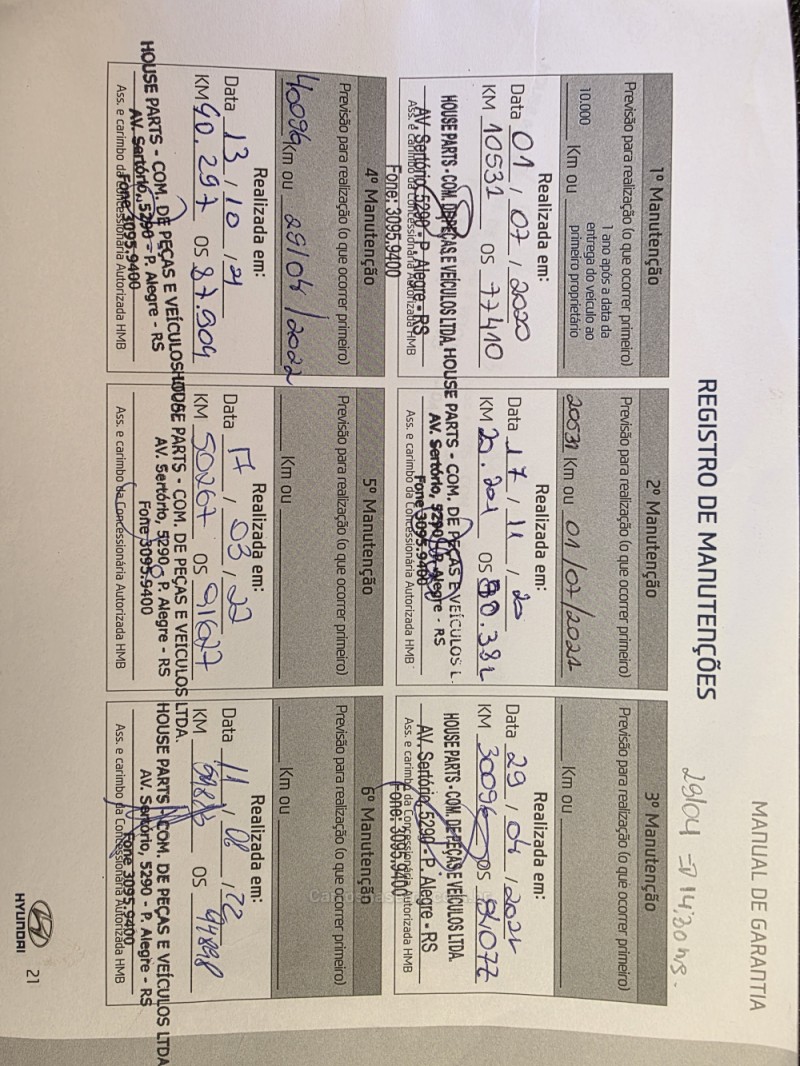 MANUAL DE GARANTIA
29/04 => 14:30 hs.
REGISTRO DE MANUTENÇÕES
1º Manutenção
Previsão para realização (o que ocorrer primeiro)
10.000 Km ou
1 ano após a data da
entrega do veículo ao
primeiro proprietário
Realizada em:
Data 01 / 07 / 2020
KM 10531 OS 77410
HOUSE PARTS - COM. DE PEÇAS E VEÍCULOS LTDA.
AV. Sertório, 5290 - P. Alegre - RS
Ass. e carimbo da Concessionária Autorizada HMB
Fone: 3095.9400
2º Manutenção
Previsão para realização (o que ocorrer primeiro)
20531 Km ou 01/07/2021
Realizada em:
Data 17 / 11 / 20
KM 20.201 OS 80.382
HOUSE PARTS - COM. DE PEÇAS E VEÍCULOS L
AV. Sertório, 5290 - P. Alegre - RS
Fone 3095.9400
Ass. e carimbo da Concessionária Autorizada HMB
3º Manutenção
Previsão para realização (o que ocorrer primeiro)
Km ou
Realizada em:
Data 29 / 04 / 2021
KM 30096 OS 84077
HOUSE PARTS - COM. DE PEÇAS E VEÍCULOS LTDA.
AV. Sertório, 5290 - P. Alegre - RS
Ass. e carimbo da Concessionária Autorizada HMB
Fone: 3095.9400
4º Manutenção
Previsão para realização (o que ocorrer primeiro)
40096 Km ou 29/04/2022
Realizada em:
Data 13 / 10 / 21
KM 40.297 OS 87.904
HOUSE PARTS - COM. DE PEÇAS E VEÍCULOS
AV. Sertório, 5290 - P. Alegre - RS
Fone 3095.9400
Ass. e carimbo da Concessionária Autorizada HMB
5º Manutenção
Previsão para realização (o que ocorrer primeiro)
Km ou
Realizada em:
Data 17 / 03 / 22
KM 50267 OS 91627
HOUSE PARTS - COM. DE PEÇAS E VEÍCULOS LTDA.
AV. Sertório, 5290, P. Alegre - RS
Fone 3095.9400
Ass. e carimbo da Concessionária Autorizada HMB
6º Manutenção
Previsão para realização (o que ocorrer primeiro)
Km ou
Realizada em:
Data 11 / 08 / 22
KM OS 94898
HOUSE PARTS - COM. DE PEÇAS E VEÍCULOS LTDA
AV. Sertório, 5290 - P. Alegre - RS
Fone 3095.9400
Ass. e carimbo da Concessionária Autorizada HMB
HYUNDAI 21